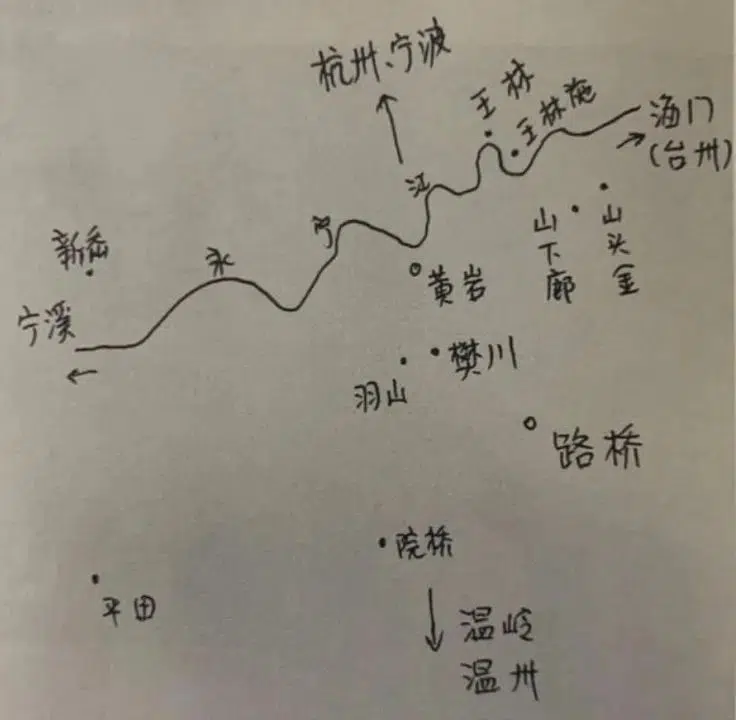 杭州、宁波
王林
王林施
海门
(台州)
江
宁
永
新岙
宁溪
黄岩
山下廊
山头金
樊川
羽山
路桥
院桥
平田
温岭
温州